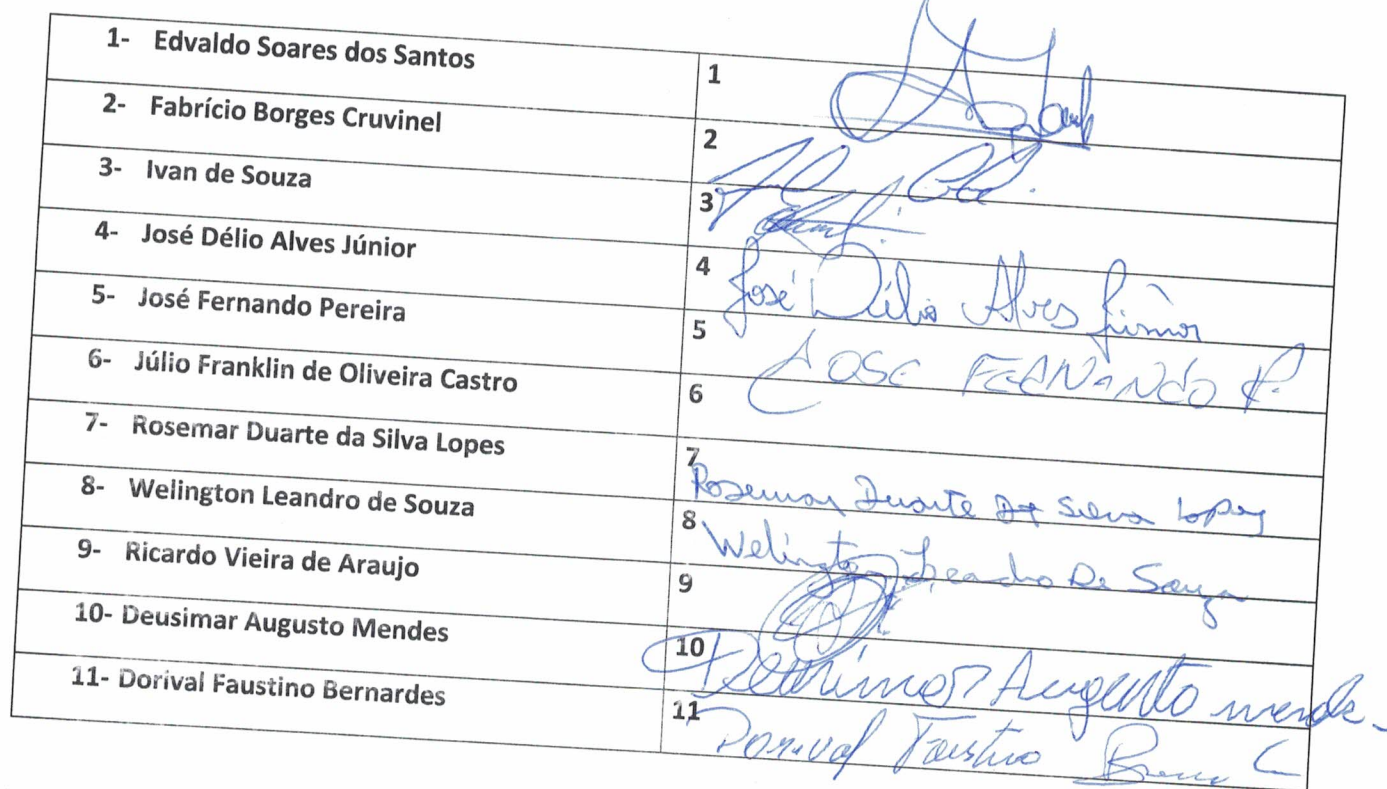 1- Edvaldo Soares dos Santos 1
2- Fabrício Borges Cruvinel 2
3- Ivan de Souza 3
4- José Délio Alves Júnior 4 José Délio Alves Júnior
5- José Fernando Pereira 5 JOSE FERNANDO P.
6- Júlio Franklin de Oliveira Castro 6
7- Rosemar Duarte da Silva Lopes 7 Rosemar Duarte DA Silva Lopes
8- Welington Leandro de Souza 8 Welington Leandro De Souza
9- Ricardo Vieira de Araujo 9
10- Deusimar Augusto Mendes 10 Augusto mende
11- Dorival Faustino Bernardes 11 Dorival Faustino